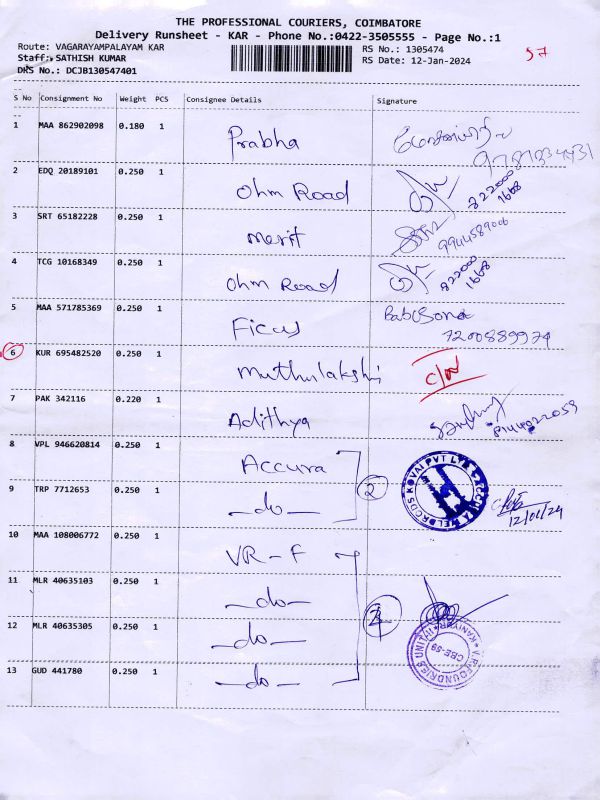 THE PROFESSIONAL COURIERS, COIMBATORE
Delivery Runsheet - KAR - Phone No.:0422-3505555 - Page No.:1
Route: VAGARAYAMPALAYAM KAR
RS No.: 1305474
57
Staff: SATHISH KUMAR
RS Date: 12-Jan-2024
DRS No.: DCJB130547401
S No Consignment No Weight PCS Consignee Details Signature
1 MAA 862902098 0.180 1 Prabha
2 EDQ 20189101 0.250 1 Ohm Road 822000 1668
3 SRT 65182228 0.250 1 merit 9944589006
4 TCG 10168349 0.250 1 Ohm Road 822000 1668
5 MAA 571785369 0.250 1 Ficus
7200889974
6 KUR 695482520 0.250 1 Muthulakshi
7 PAK 342116 0.220 1 Adithya
8 VPL 946620814 0.250 1 Accura
2
9 TRP 7712653 0.250 1 -do-
12/01/24
10 MAA 108006772 0.250 1 VR-F
11 MLR 40635103 0.250 1 -do-
12 MLR 40635305 0.250 1 -do-
13 GUD 441780 0.250 1 -do-
CBE-59